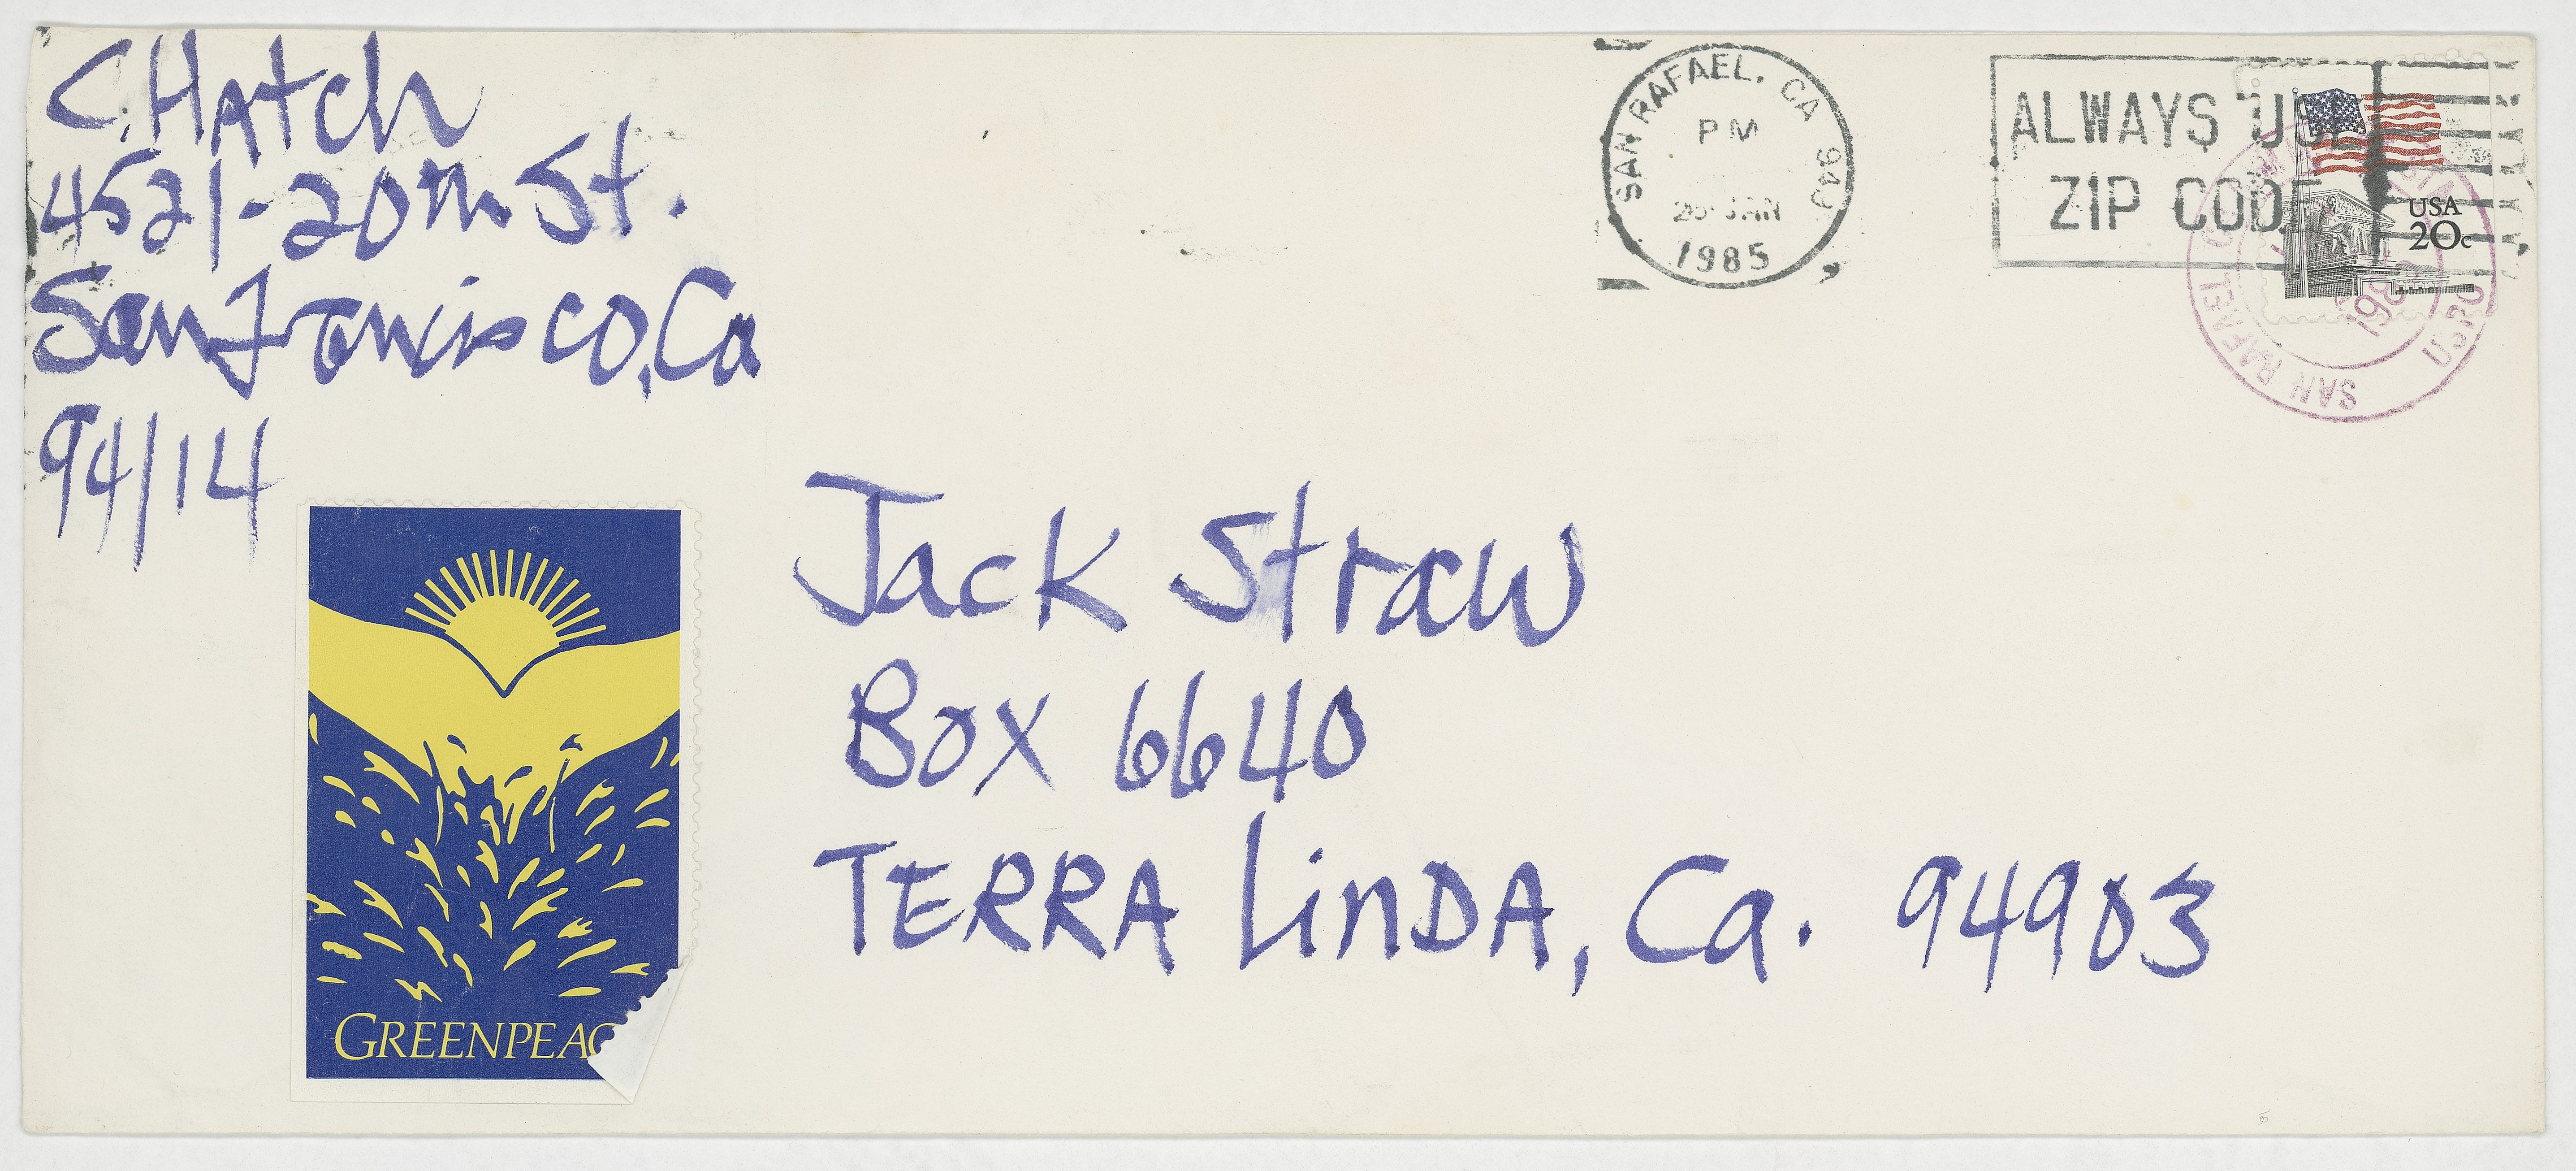 C. Hatch
4521-20th St.
San Francisco, Ca
94114
SAN RAFAEL, CA 949
PM
JAN
1985
ALWAYS USE
ZIP CODE
USA
20c
SAN RAFAEL
USPO
Jack Straw
Box 6640
TERRA LinDA, Ca. 94903
GREENPEAC